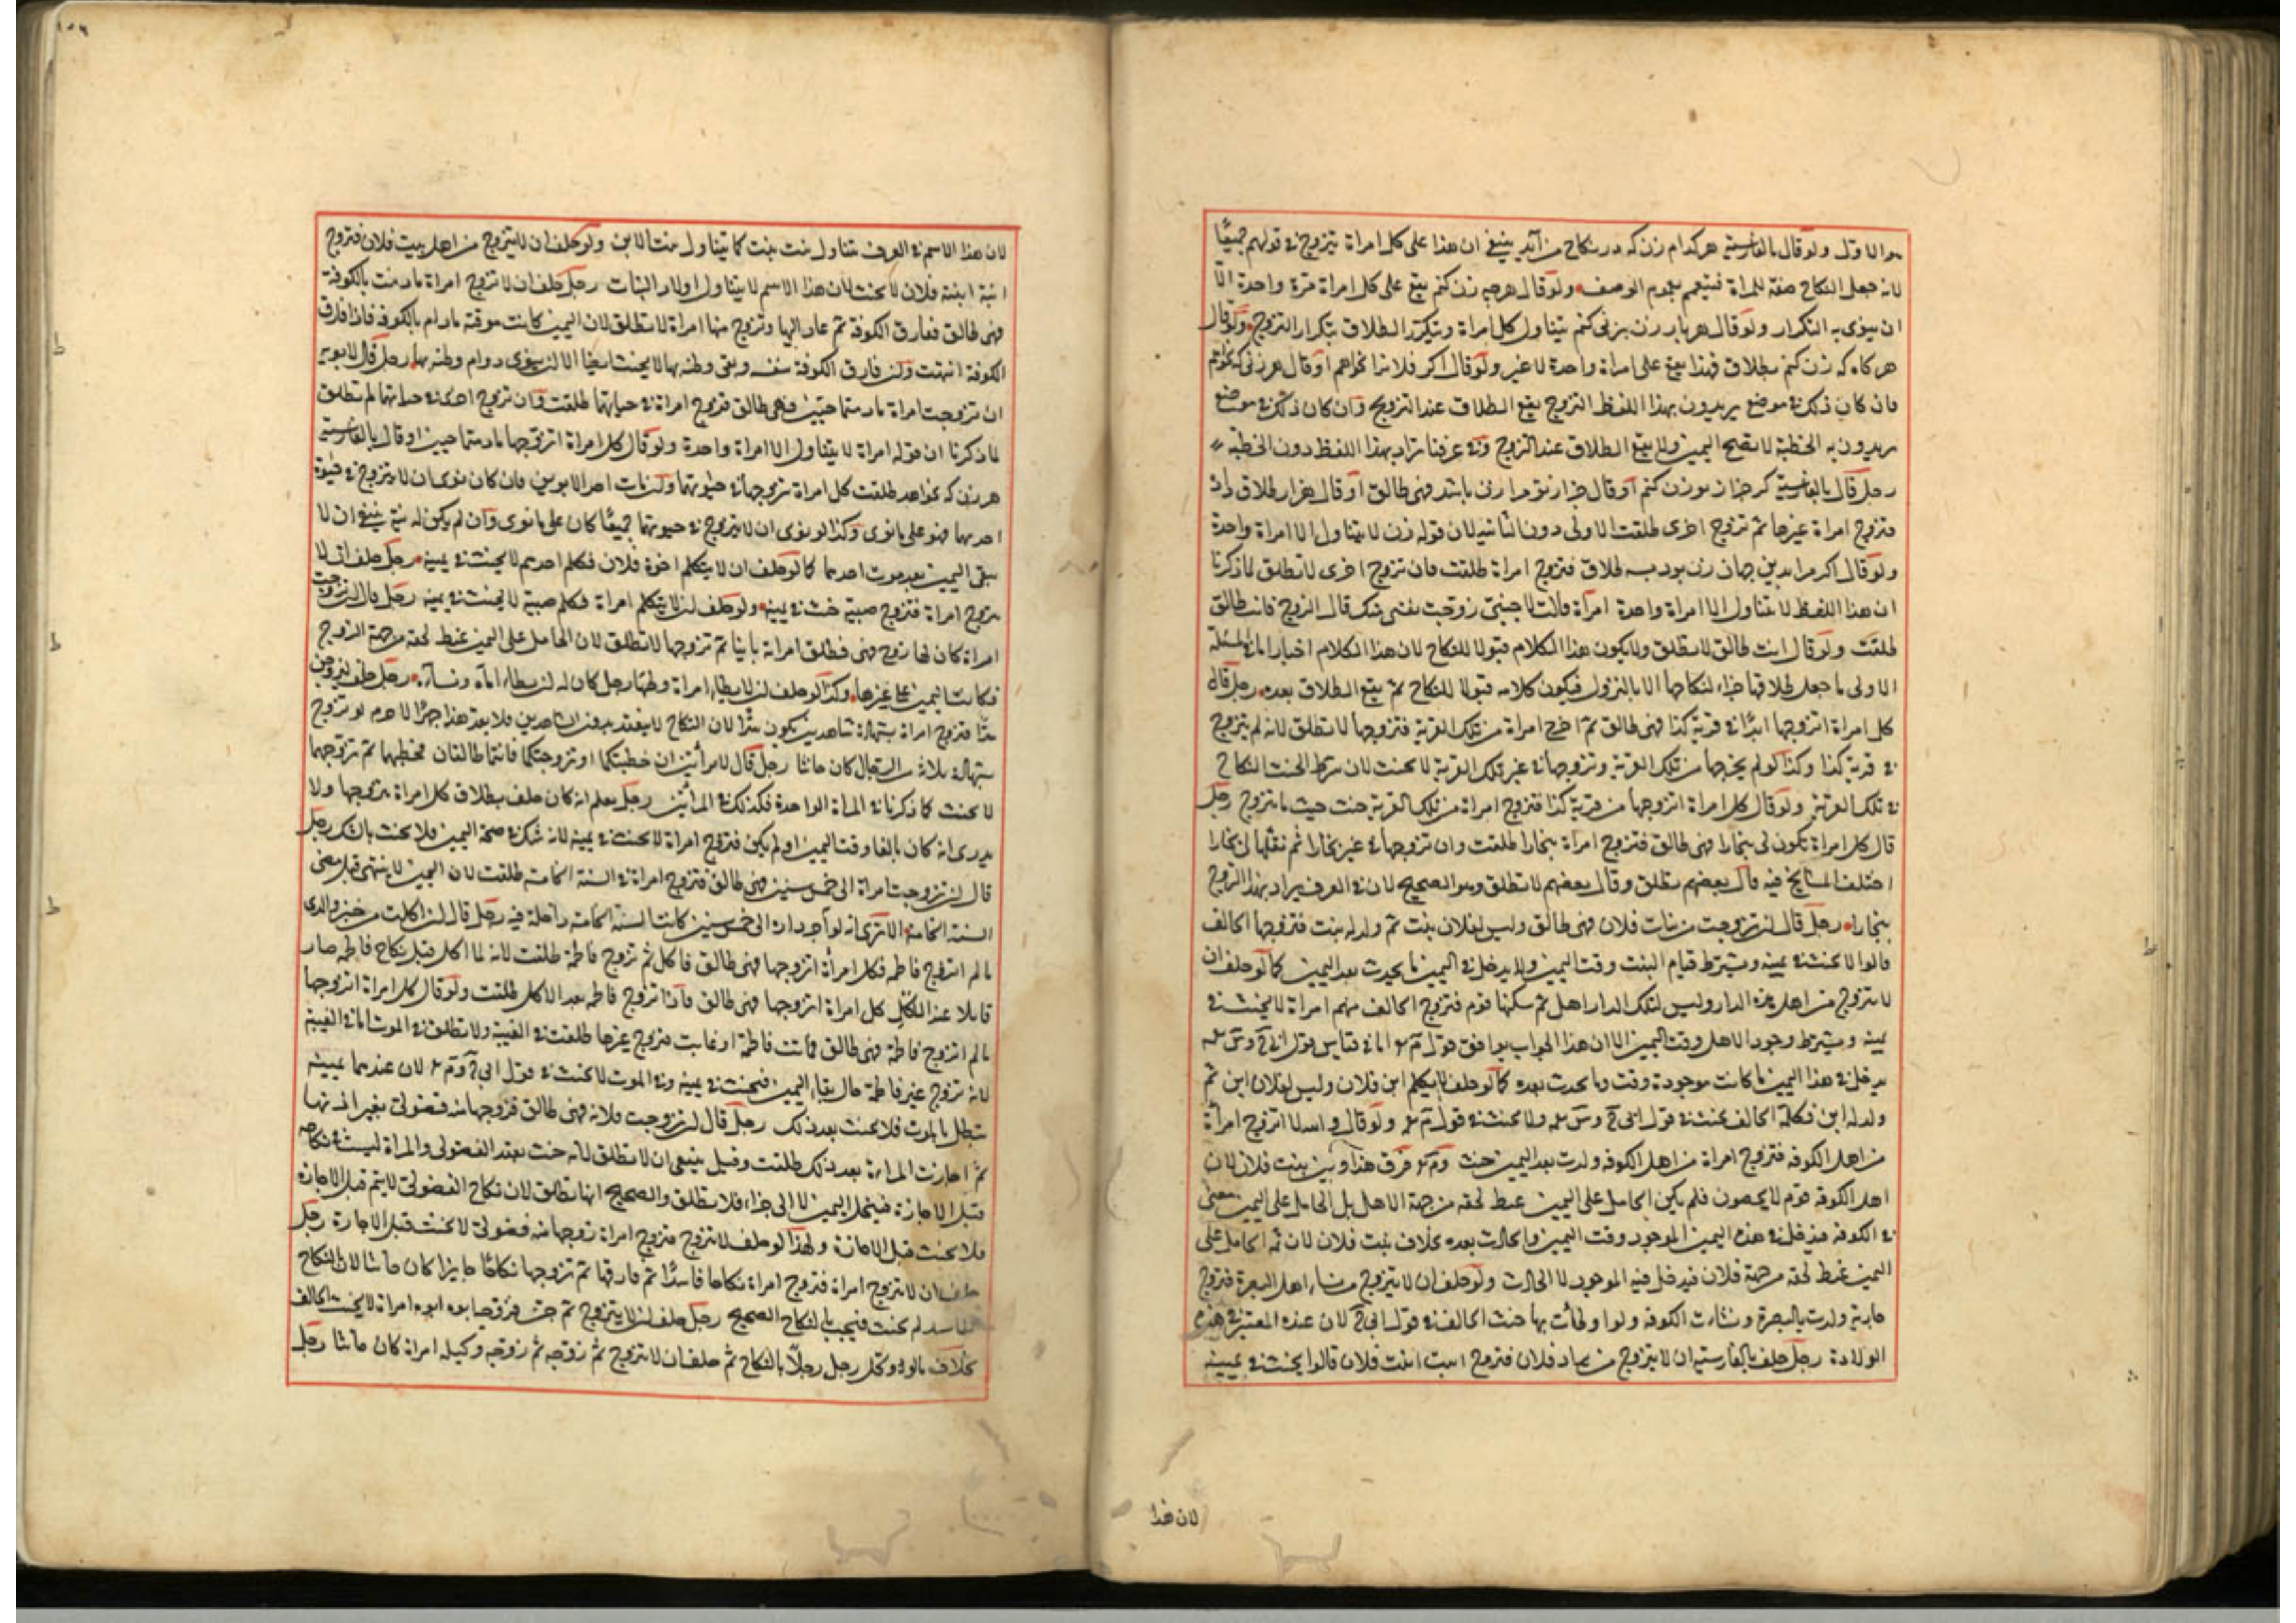 هو الاول ولو قال بالفارسية هر كدام زن كه در نكاح من آيد ينبغي ان هذا على كل امراة يتزوج في قولهم جميعا
لانه جعل النكاح صفة للمراة فيتعمم بعموم الوصف ولو قال هرجه زن كنم يقع على كل امراة مرة واحدة الا
ان ينوى به التكرار ولو قال هر بار زن بزنى كنم يتناول كل امراة ويتكرر الطلاق بتكرار التزوج ولو قال
هر كاه كه زن كنم بطلاق فهذا يقع على امراة واحدة لا غير ولو قال اكر فلانرا بخواهم او قال هر زنى كه بخواهم
فان كان ذلك في موضع يريدون بهذا اللفظ التزوج يقع الطلاق عند التزوج وان كان ذلك في موضع
يريدون به الخطبة لا تصح اليمين ولا يقع الطلاق عند التزوج وفي عرفنا يراد بهذا اللفظ دون الخطبة
رجل قال بالفارسية كر جز از تو زن كنم او قال جز از تو مرا زن باشد فهى طالق او قال هزار طلاق داد
فتزوج امراة غيرها ثم تزوج اخرى طلقت الاولى دون الثانية لان قوله زن لا يتناول الا امراة واحدة
ولو قال اكر مرا بدين جهان زن بود بسه طلاق فتزوج امراة طلقت فان تزوج اخرى لا تطلق لما ذكرنا
ان هذا اللفظ لا يتناول الا امراة واحدة امرأة قالت لاجنبي زوجت نفسي منك قال الزوج فانت طالق
طلقت ولو قال انت طالق لا تطلق ولا يكون هذا الكلام قبولا للنكاح لان هذا الكلام اخبار اما في المسئلة
الاولى ما جعل طلاقها جزاء لنكاحها الا بالنزول فيكون كلامه قبولا للنكاح ثم يقع الطلاق بعده رجل قال
كل امراة اتزوجها ابدا في قرية كذا فهى طالق ثم اخرج امراة من تلك القرية فتزوجها لا تطلق لانه لم يتزوج
في قرية كذا وكذا لو لم يخرجها من تلك القرية وتزوجها في غير تلك القرية لا يحنث لان شرط الحنث النكاح
في تلك القرية ولو قال كل امراة اتزوجها من قرية كذا فتزوج امراة من تلك القرية حنث حيث ما تزوج رجل
قال كل امراة تكون لى ببخارا فهى طالق فتزوج امراة ببخارا طلقت وان تزوجها في غير بخارا ثم نقلها الى بخارا
اختلف المشايخ فيه قال بعضهم تطلق وقال بعضهم لا تطلق وهو الصحيح لان في العرف يراد بهذا التزوج
ببخارا رجل قال ان تزوجت من بنات فلان فهى طالق وليس لفلان بنت ثم ولد له بنت فتزوجها الحالف
قالوا لا يحنث في يمينه ويشترط قيام البنت وقت اليمين ولا يدخل في اليمين ما يحدث بعد اليمين كما لو حلف ان
لا يتزوج من اهل هذه الدار وليس لتلك الدار اهل ثم سكنها قوم فتزوج الحالف منهم امراة لا يحنث في
يمينه ويشترط وجود الاهل وقت اليمين الا ان هذا الجواب يوافق قول
يدخل في هذا اليمين ما كانت موجودة وقت وما يحدث بعده كما لو حلف لا يكلم ابن فلان وليس لفلان ابن ثم
ولد له ابن فكلمه الحالف يحنث في قول ولا يحنث في قول ولو قال والله لا اتزوج امراة
من اهل الكوفة فتزوج امراة من اهل الكوفة ولدت بعد اليمين حنث فرق هذا وبين بنت فلان لان
اهل الكوفة قوم لا يحصون فلم يكن الحامل على اليمين غيظ لحقه من جهة الاهل بل الحامل على اليمين معنى
في الكوفة فيدخل في هذه اليمين الموجود وقت اليمين والحادث بعده بخلاف بنت فلان لان ثمه الحامل على
اليمين غيظ لحقه من جهة فلان فيدخل فيه الموجود لا الحادث ولو حلف ان لا يتزوج من نساء اهل البصرة فتزوج
جارية ولدت بالبصرة ونشأت بالكوفة بها حنث الحالف في قول لان عنده المعتبر في هذه
الولادة رجل حلف بالفارسية ان لا يتزوج من فلان فتزوج ابنت ابنت فلان قالوا يحنث في يمينه
لان هذا
لان هذا الاسم في العرف يتناول بنت بنت كما يتناول بنت الابن ولو حلف ان لا يتزوج من اهل بيت فلان فتزوج
ابنة ابنة فلان لا يحنث لان هذا الاسم لا يتناول اولاد البنات رجل حلف ان لا تزوج امراة ما دمت بالكوفة
فهى طالق ففارق الكوفة ثم عاد اليها وتزوج منها امراة لا تطلق لان اليمين كانت موقتة ما دام بالكوفة فاذا فارق
الكوفة انتهت وان فارق الكوفة بنفسه وبقى وطنه بها لا يحنث ايضا الا ان ينوى دوام وطنه بها رجل قال لابويه
ان تزوجت امراة ما دمتما حيين فهى طالق فتزوج امراة في حياتهما طلقت وان تزوج اخرى في حياتهما لم تطلق
لما ذكرنا ان قوله امراة لا يتناول الا امراة واحدة ولو قال كل امراة اتزوجها ما دمتما حيين او قال بالفارسية
هر زن كه بخواهد طلقت كل امراة تزوجها في حيوتهما وان مات احد الابوين فان كان نوى ان لا يتزوج في حيوة
احدهما فهو على ما نوى وكذا لو نوى ان لا يتزوج في حيوتهما جميعا كان على ما نوى وان لم يكن له نية ينبغي ان لا
يبقى اليمين بعد موت احدهما كما لو حلف ان لا يكلم اخوة فلان فكلم احدهم لا يحنث في يمينه رجل حلف ان لا
يتزوج امراة فتزوج صبية حنث في يمينه ولو حلف ان لا يكلم امراة فكلم صبية لا يحنث في يمينه رجل قال ان تزوجت
امراة كان لها زوج فهى فطلق امراته باينا ثم تزوجها لا تطلق لان الحامل على اليمين غيظ لحقه من جهة الزوج
فكانت اليمين على غيرها وكذا لو حلف ان لا يطاء امراة وطئها رجل كان له ان يطاء امآه ونساءه رجل حلف
سرا فتزوج امراة بشهادة شاهدين يكون سرا لان النكاح لا ينعقد بدون الشاهدين فلا يعد هذا جهرا لا جرم لو تزوج
بشهادة ثلاثة من الرجال كان حانثا رجل قال لامرأتين ان خطبتكما او تزوجتكما فانتما طالقتان فخطبهما ثم تزوجهما
لا يحنث كما ذكرنا في المراة الواحدة فكذلك في المرأتين رجل يعلم انه كان حلف بطلاق كل امراة يتزوجها ولا
يدرى انه كان بالغا وقت اليمين او لم يكن فتزوج امراة لا يحنث في يمينه لانه شك في صحة اليمين فلا يحنث بالشك رجل
قال ان تزوجت امراة الى خمس سنين فهى طالق فتزوج امراة في السنة الخامسة طلقت لان اليمين لا ينتهى قبل مضى
السنة الخامسة الا ترى انه لو آجر داره الى خمس سنين كانت السنة الخامسة داخلة فيه رجل قال ان اكلت من خبز والدى
ما لم اتزوج فاطمة فكل امرأة اتزوجها فهى طالق فاكل ثم تزوج فاطمة طلقت لانه لما اكل قبل نكاح فاطمة صار
قائلا عند الاكل كل امراة اتزوجها فهى طالق فاذا تزوج فاطمة بعد الاكل طلقت ولو قال كل امراة اتزوجها
ما لم اتزوج فاطمة فهى طالق فماتت فاطمة او غابت فتزوج غيرها طلقت في الغيبة ولا تطلق في الموت اما في الغيبة
لانه تزوج غير فاطمة حال بقاء اليمين فيحنث في يمينه وفي الموت لا يحنث في قول لان عندهما يمينه
تبطل بالموت فلا يحنث بعد ذلك رجل قال ان تزوجت فلانة فهى طالق فزوجها منه فضولى بغير اذنها
ثم اجازت المراءة بعد ذلك طلقت وقيل ينبغى ان لا تطلق لانه حنث بعقد الفضولى والمراة ليست في نكاحه
قبل الاجازة فينحل اليمين لا الى جزاء فلا تطلق والصحيح انها تطلق لان نكاح الفضولى لا يتم قبل الاجازة
فلا يحنث قبل الاجازة ولهذا لو حلف لا يتزوج فتزوج امراة زوجها منه فضولى لا يحنث قبل الاجازة رجل
حلف ان لا يتزوج امراة فتزوج امراة نكاحا فاسدا ثم فارقها ثم تزوجها نكاحا جايزا كان حانثا لان النكاح
الفاسد لم يحنث فيجب بالنكاح الصحيح رجل حلف ان لا يتزوج ثم جن فزوجها ابوه امراة لا يحنث الحالف
بخلاف ما لو وكل رجل رجلا بالنكاح ثم حلف ان لا يتزوج ثم زوجه وكيله امراة كان حانثا رجل